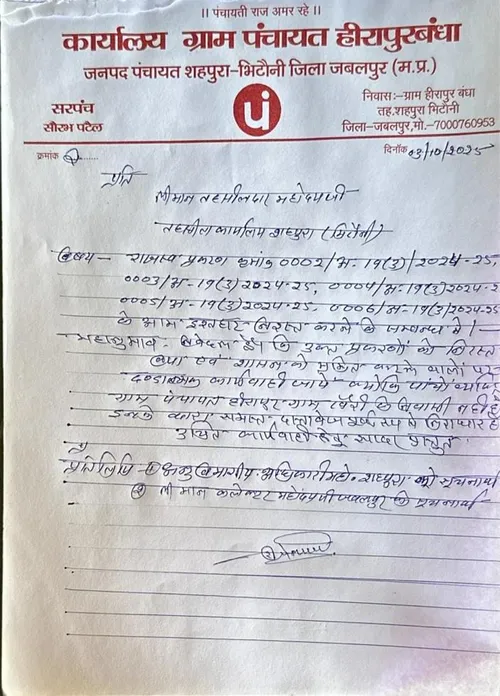 ।। पंचायती राज अमर रहे ।।
कार्यालय ग्राम पंचायत हीरापुरबंधा
जनपद पंचायत शहपुरा-भिटौनी जिला जबलपुर (म.प्र.)
सरपंच
सौरभ पटेल
निवास:-ग्राम हीरापुर बंधा
तह.शहपुरा भिटौनी
जिला-जबलपुर,मो.-7000760953
क्रमांक
दिनाँक 03/10/2025
प्रति
श्रीमान तहसीलदार महोदय जी
तहसील कार्यालय शहपुरा (भिटौनी)
विषय - राजस्व प्रकरण क्रमांक 0002/अ-19(3)/2024-25,
0003/अ-19(3)2024-25, 0004/अ-19(3)/2024-2
0005/अ-19(3)2024-25, 0006/अ-19(3)/2024-25
के आम इश्तहार निरस्त करने के सम्बन्ध में।
महानुभाव- निवेदन है कि उक्त प्रकरणों को निरस्त
एवं शासन को करने वालों पर
दण्डात्मक कार्यवाही जावे क्योंकि पांचों
ग्राम पंचायत हीरापुर ग्राम के निवासी नही है
इनके समस्त दस्तावेज है
उचित कार्यवाही हेतु सादर प्रस्तुत
प्रतिलिपि - अनुविभागीय अधिकारी महो. शहपुरा को सूचनार्थ
② श्रीमान कलेक्टर महोदय जी जबलपुर सूचनार्थ